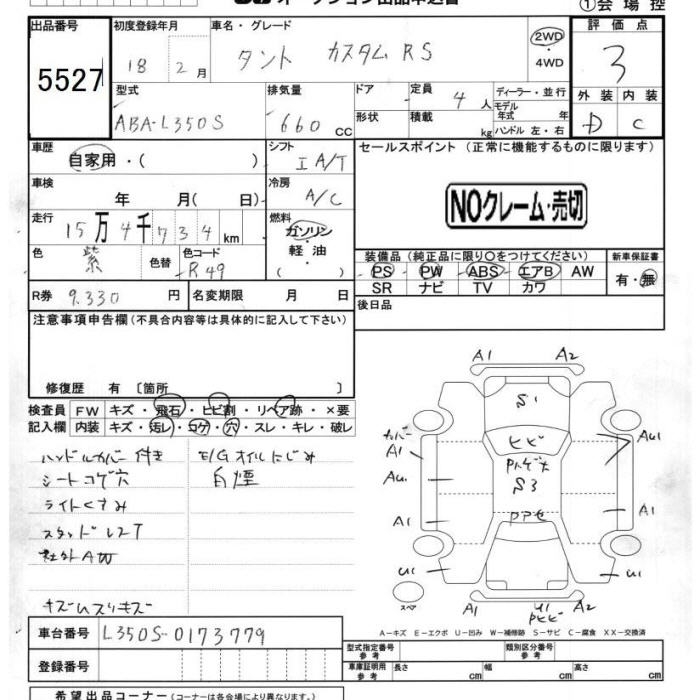 オークション出品申込書
①会場控
出品番号 初度登録年月 車名・グレード 2WD・4WD 評価点
5527 18年2月 タント カスタムRS 3
型式 排気量 ドア 定員 ディーラー・並行 外装 内装
ABA-L350S 660cc 形状 積載 4人 kg モデル年式 年 ハンドル 左・右 D C
車歴 自家用・( ) シフト IA/T セールスポイント (正常に機能するものに限ります)
車検 年 月(日) 冷房 A/C
NOクレーム・売切
走行 15万4千734km 燃料 ガソリン・軽油・( )
色 紫 色替 色コード R49
装備品 (純正品に限り○をつけてください) 新車保証書
PS PW ABS エアB AW 有・無
SR ナビ TV カワ
R券 9.330円 名変期限 月 日
後日品
注意事項申告欄 (不具合内容等は具体的に記入して下さい)
修復歴 有 〔箇所 〕
検査員 FW キズ・飛石・ヒビ割・リペア跡・×要
記入欄 内装 キズ・汚レ・コゲ・穴・スレ・キレ・破レ
ハンドルカバー付き E/Gオイルにじみ
シートコゲ穴 白煙
ライトくすみ
スタッドレスT
社外AW
キズムスリキズ
A1 A2
S1
カバー A1 ヒビ AU1
AU1 S3
A1 A1
U1 U1
スペア A1 U1 A2
A-キズ E-エクボ U-凹み W-補修跡 S-サビ C-腐食 XX-交換済
車台番号 L350S-0173779
登録番号
型式指定番号 参考 類別区分番号 参考
車庫証明用 参考 長さ cm 幅 cm 高さ cm
希望出品コーナー (コーナーは各会場により異なります。)